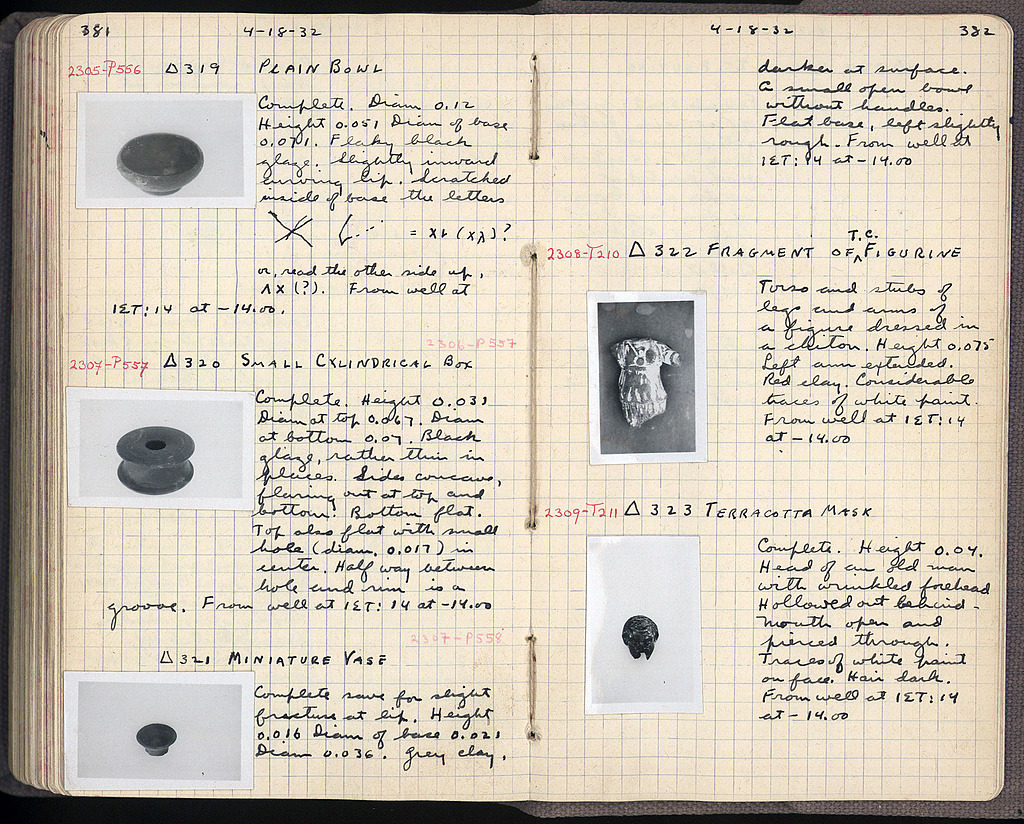 381
4-18-32
2305-P556 Δ319 PLAIN BOWL
Complete. Diam 0.12
Height 0.051 Diam of base
0.071. Flaky black
glaze. Slightly inward
curving lip. Scratched
inside of base the letters
= XL (Xλ)?
or, read the other side up,
ΛX (?). From well at
1ET:14 at -14.00.
2306-P557
2307-P557 Δ320 SMALL CYLINDRICAL BOX
Complete. Height 0.031
Diam at top 0.067. Diam
at bottom 0.07. Black
glaze, rather thin in
places. Sides concave,
flaring out at top and
bottom. Bottom flat.
Top also flat with small
hole (diam. 0.017) in
center. Half way between
hole and rim is a
groove. From well at 1ET:14 at -14.00
2307-P558
Δ321 MINIATURE VASE
Complete save for slight
fracture at lip. Height
0.016 Diam of base 0.021
Diam 0.036. Grey clay,
4-18-32
382
darker at surface.
A small open bowl
without handles.
Flat base, left slightly
rough. From well at
1ET:14 at -14.00
2308-T210 Δ322 FRAGMENT OF T.C. FIGURINE
Torso and stubs of
legs and arms of
a figure dressed in
a chiton. Height 0.075
Left arm extended.
Red clay. Considerable
traces of white paint.
From well at 1ET:14
at -14.00
2309-T211 Δ323 TERRACOTTA MASK
Complete. Height 0.04.
Head of an old man
with wrinkled forehead
Hollowed out behind -
mouth open and
pierced through.
Traces of white paint
on face. Hair dark.
From well at 1ET:14
at -14.00